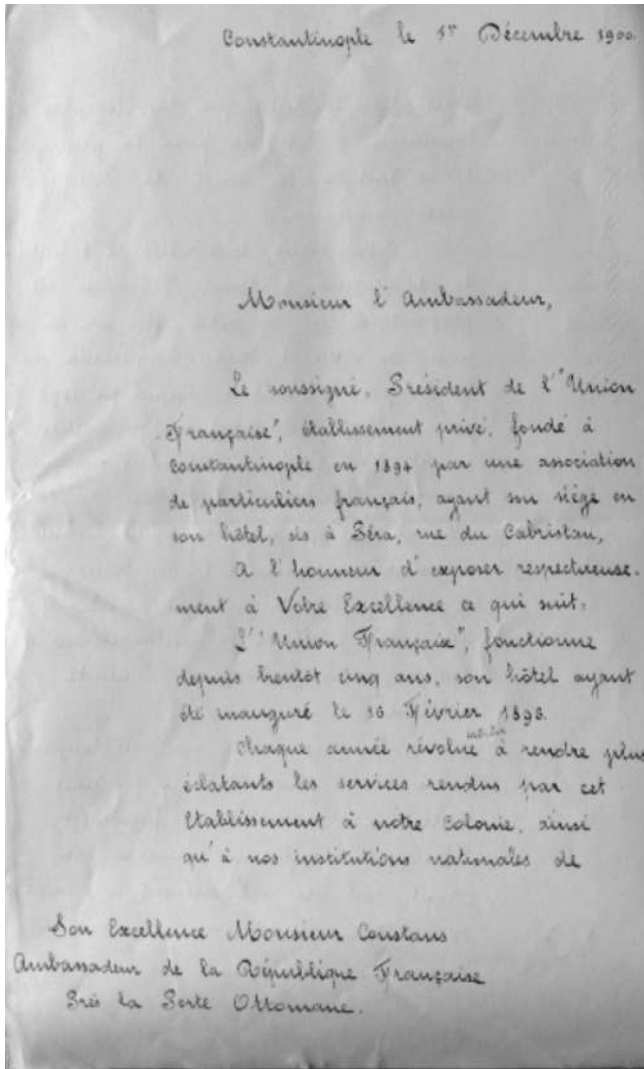 Constantinople le 1er Décembre 1900.
Monsieur l'Ambassadeur,
Le soussigné, Président de l'"Union
Française", établissement privé, fondé à
Constantinople en 1894 par une association
de particuliers français, ayant son siège en
son hôtel, sis à Péra, rue du Cabristan,
A l'honneur d'exposer respectueuse-
ment à Votre Excellence ce qui suit:
L'"Union Française", fonctionne
depuis bientôt cinq ans, son hôtel ayant
été inauguré le 16 Février 1896.
Chaque année révolue à rendre plus
éclatants les services rendus par cet
Etablissement à notre Colonie, ainsi
qu'à nos institutions nationales de
Son Excellence Monsieur Constans
Ambassadeur de la République Française
Près la Porte Ottomane.